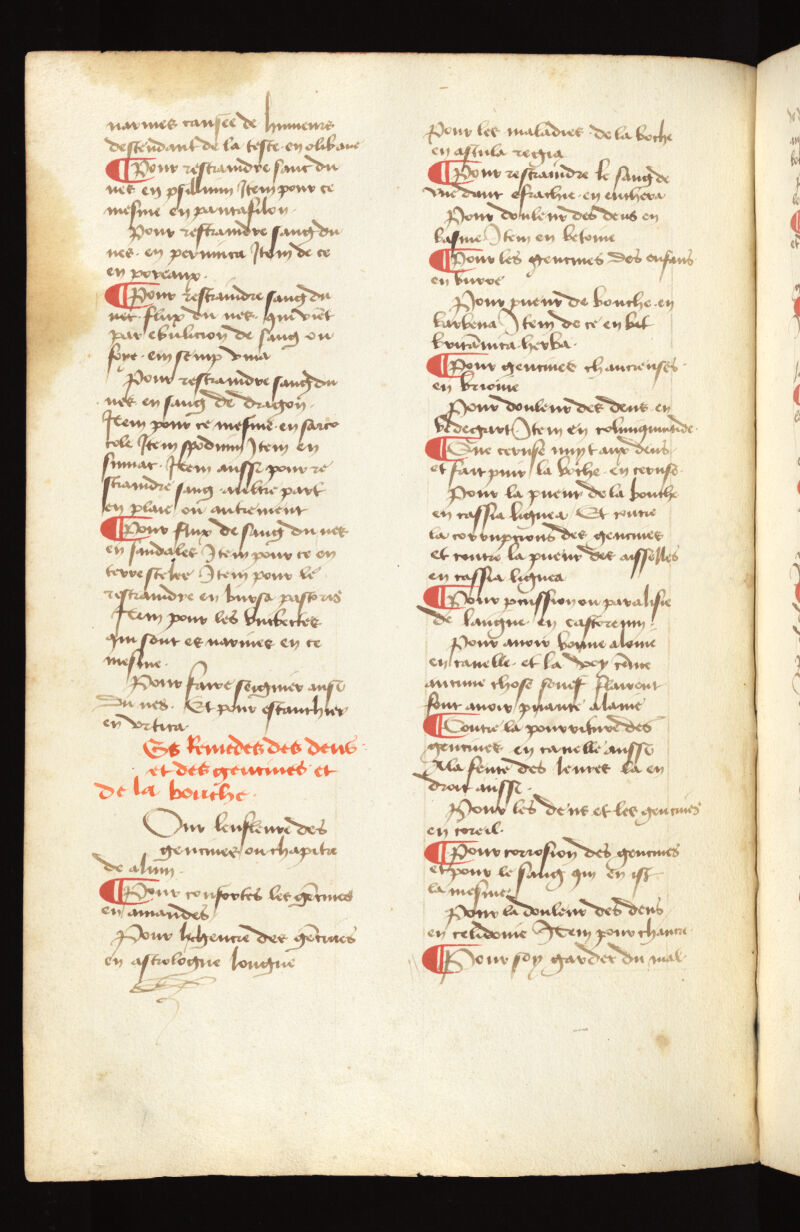 narines causee de humeurs
descendant de la teste en olibane
Pour restraindre sanc du
nes en psilium Item pour ce
mesme en pantafilon
Pour restraindre sang du
nes en peruinca Item de ce
en poreaux
Pour restraindre sang du
nes flux du nes qui viēt
par ebulicion de sang ou
foye en semp viua
Pour restraindre sang du
nes en sang de dragon
Item pour ce mesme en sarco
cole Item spodium Item en
sumac Item ausse pour re
straindre sang aultre part
en plaie ou autrement
Pour flux de sang du nes
en sandales Item pour ce en
terrestelee Item pour le
restraindre en bursa pastoris
Item pour les bubettes
qui sont es narines en ce
mesme
Pour faire seignier ausse
du nes Et pour estanchier
en vrtica
Es Remedes des dens
et des gencines et
de la bouche
Our lenfleure des
gencines ou chapitre
de alun
Pour conforter les gēcines
en amandes
Pour des gēcines
en astrologue longue
Pour les maladies de la boche
en astula regia
Pour restraindre le sang de
vne dent en euthera
Pour douleur des dens en
basme Item en betoine
Pour les gencines des enfans
en burre
Pour pueur de bouche en
barbena Item de ce en bit
britānica herba
Pour gencines chancreuses
en brioine
Pour douleur des dens en
bedegart Item en colinquintide
Que ceruse nuyt aux dens
et fait puir la boche en ceruse
Pour la pueur de la bouche
en cassia lignea Et contre
la corrupcions des gencines
et contre la pueur des aisselles
en cassia lignea
Pour percussion ou paralisie
de langue en castoreum
Pour auoir bonne aleine
en canelle et la voy cōme
aucune chose souef flairent
font auoir puante alaine
Contre la pourriture des
gencines en canelle ausse
A la fente des leures la en
droit ausse
Pour les dens et les gencines
en coreil
Pour corrosion des gencines
et pour le sang qui en ist
la mesme
Pour la douleur des dens
en celidoine Item pour chancre
Pour soy garder du mal